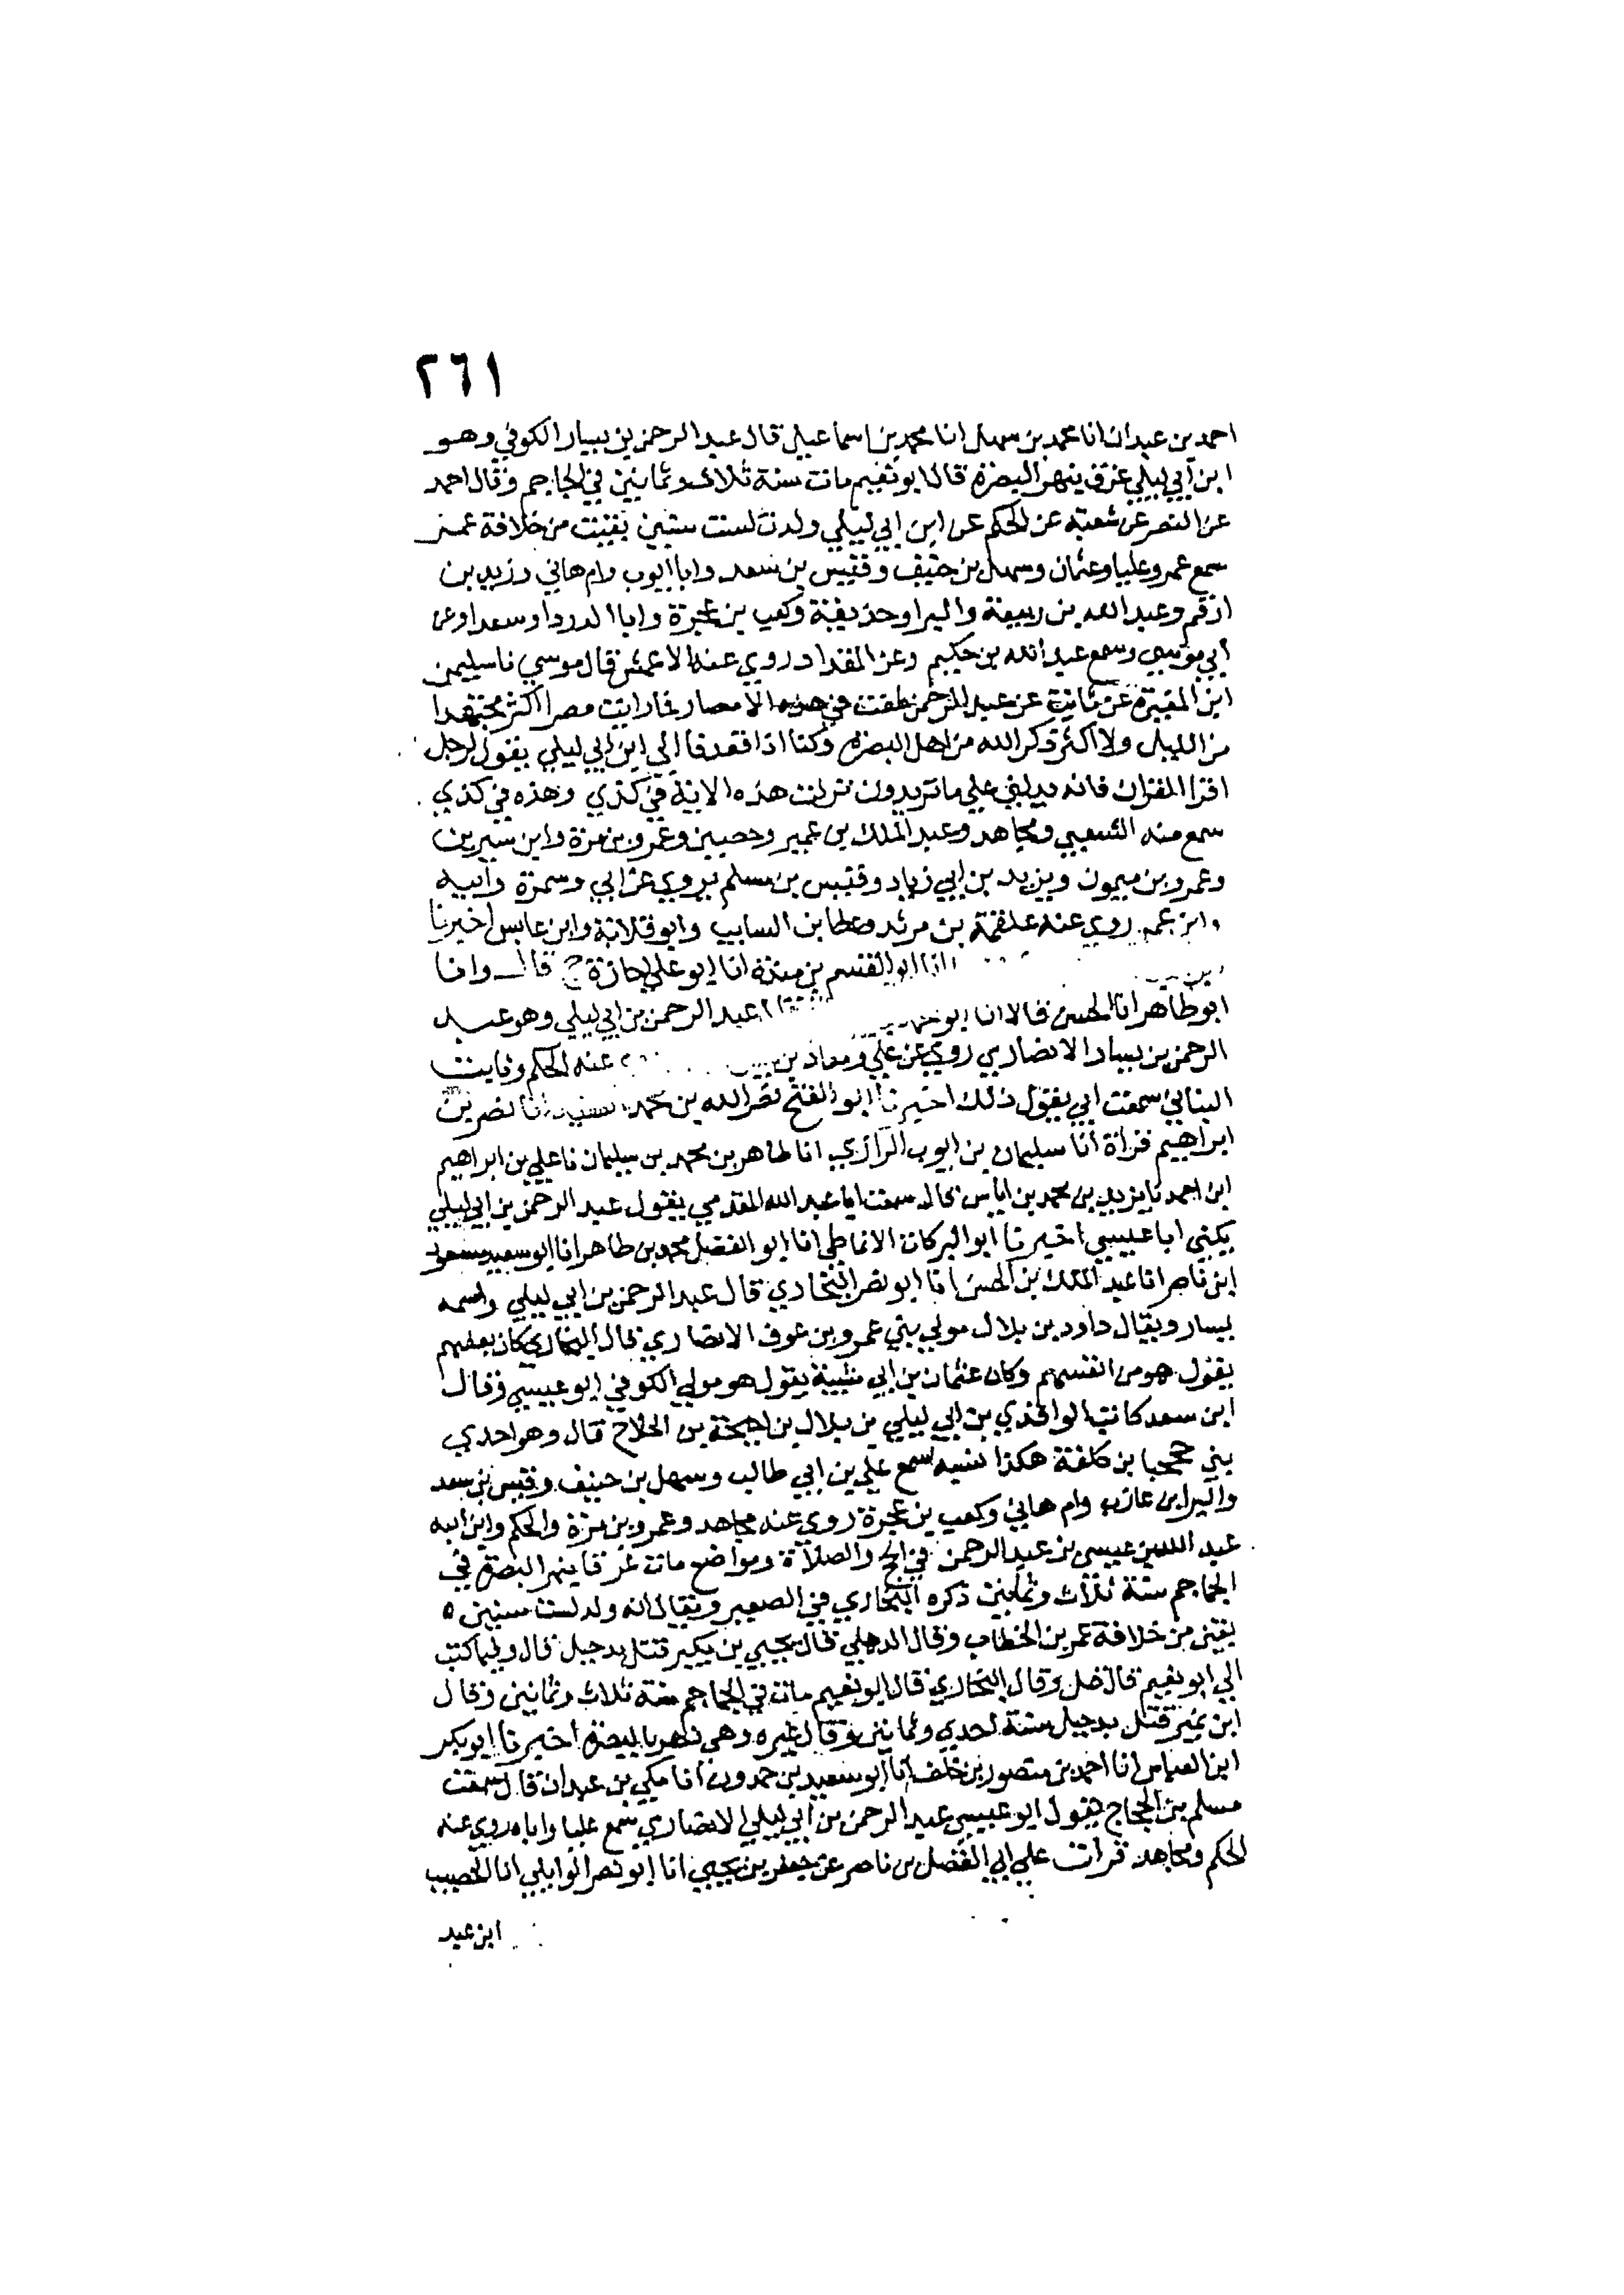 ٢٦١
احمد بن عبدان انا محمد بن سهل انا محمد بن اسماعيل قال عبد الرحمن بن يسار الكوفي وهو
ابن ابي ليلي غرق بنهر البصرة قال ابو نعيم مات سنة ثلاث وثمانين في الجاجم وقال احمد
عن النضر عن شعبة عن الحكم عن ابن ابي ليلي ولدت لست سنين بقيت من خلافة عمر
سمع عمر وعليا وعثمان وسهل بن حنيف وقيس بن سعد وابا ايوب وام هاني وزيد بن
ارقم وعبد الله بن ربيعة والبرا وحذيفة وكعب بن عجرة وابا الدردا وسعدا وعن
ابي موسي وسمع عبد الله بن حكيم وعن المقداد روي عنه الاعمش قال موسي نا سليمن
ابن المغيرة عن ثابت عن عبد الرحمن طفت في هذه الامصار فما رايت مصرا اكثر مجتهدا
من الليل ولا اكثر ذكر الله من اهل البصرة وكنا اذا قعدنا الي ابن ابي ليلي يقول لرجل
اقرا القران فانه يدلني علي ما تريدون نزلت هذه الاية في كذي وهذه في كذي
سمع منه الشعبي ومجاهد وعبد الملك بن عمير وحصين وعمرو بن مرة وابن سيرين
وعمرو بن ميمون ويزيد بن ابي زياد وقيس بن مسلم يروي عن ابي وسمرة وابيه
وابن عمر روي عنه علقمة بن مرثد وعطا بن السايب وابو قلابة وابن عابس اخبرنا
انا ابو القسم بن منده انا ابو علي اجازة ح قال وانا
ابو طاهر انا الحسن قالا انا ابو عبد الرحمن بن ابي ليلي وهو عبد
الرحمن بن يسار الانصاري روي عن علي ومعاذ بن عنه الحكم وثابت
البناني سمعت ابي يقول ذلك اخبرنا ابو الفتح نصر الله بن محمد انا نصر بن
ابراهيم قراة انا سليمان بن ايوب الرازي انا طاهر بن محمد بن سليمان نا علي بن ابراهيم
ابن احمد نا يزيد بن محمد بن اياس قال سمعت ابا عبد الله المقدمي يقول عبد الرحمن بن ابي ليلي
يكني ابا عيسي اخبرنا ابو البركات الانماطي انا ابو الفضل محمد بن طاهر انا ابو سعيد مسعود
ابن ناصر انا عبد الملك بن الحسن انا ابو نصر البخاري قال عبد الرحمن بن ابي ليلي واسمه
يسار ويقال داود بن بلال مولي بني عمرو بن عوف الانصاري قال البخاري كان بعضهم
يقول هو من انفسهم وكان عثمان بن ابي شيبة يقول هو مولي الكوفي ابو عيسي وقال
ابن سعد كاتب الواقدي بن ابي ليلي بن بلال بن احيحة بن الجلاح قال وهو احدي
بني جحجبا بن كلفة هكذا نسبه سمع علي بن ابي طالب وسهل بن حنيف وقيس بن سعد
والبرا بن عازب وام هاني وكعب بن عجرة روي عنه مجاهد وعمرو بن مرة والحكم وابن ابنه
عبد الله بن عيسي بن عبد الرحمن في الحج والصلاة ومواضع مات غرقا بنهر البصرة في
الجماجم سنة ثلاث وثمانين ذكره البخاري في الصغير ويقال انه ولد لست سنين ٥
بقين من خلافة عمر بن الخطاب وقال الذهلي قال يحيي بن بكير قتل بدجيل قال وفيما كتب
الي ابو نعيم قال ضل وقال البخاري قال ابو نعيم مات في الجماجم سنة ثلاث وثمانين وقال
ابن نمير قتل بدجيل سنة احدي وثمانين وقال غيره وهي نهر بالبصرة اخبرنا ابو بكر
ابن العباس انا احمد بن منصور بن خلف انا ابو سعيد بن حمدون انا مكي بن عبدان قال سمعت
مسلم بن الحجاج يقول ابو عيسي عبد الرحمن بن ابي ليلي الانصاري سمع عليا واباه روي عنه
الحكم ومجاهد قرات علي ابي الفضل بن ناصر عن جعفر بن يحيي انا ابو نصر الوايلي انا الخصيب
ابن عبد